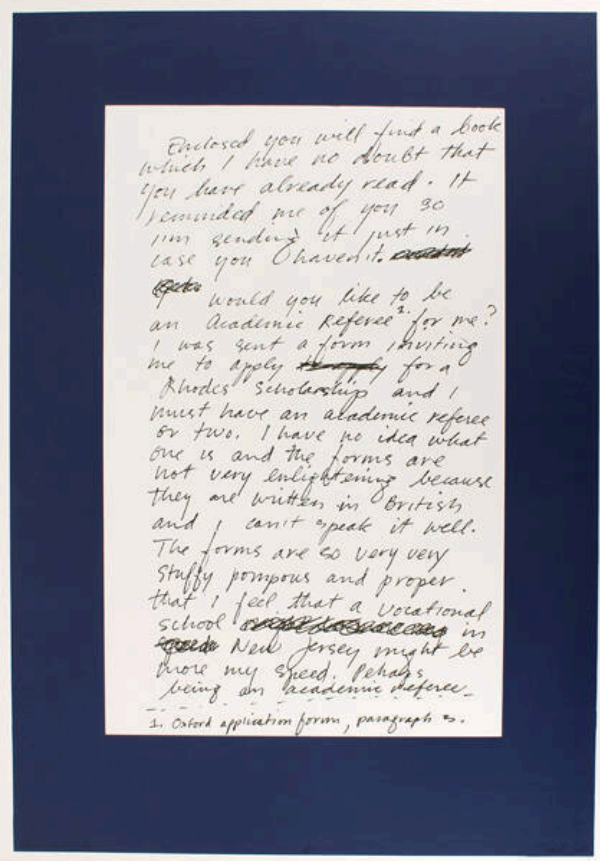 Enclosed you will find a book
which I have no doubt that
you have already read. It
reminded me of you so
I'm sending it just in
case you haven't.
would you like to be
an Academic Referee 1. for me?
I was sent a form inviting
me to apply for a
Rhodes Scholarship and I
must have an academic referee
or two. I have no idea what
one is and the forms are
not very enlightening because
they are written in British
and I can't speak it well.
The forms are so very very
stuffy pompous and proper
that I feel that a vocational
school in
New Jersey might be
more my speed. Pehaps
being an academic referee
1. Oxford application form, paragraph